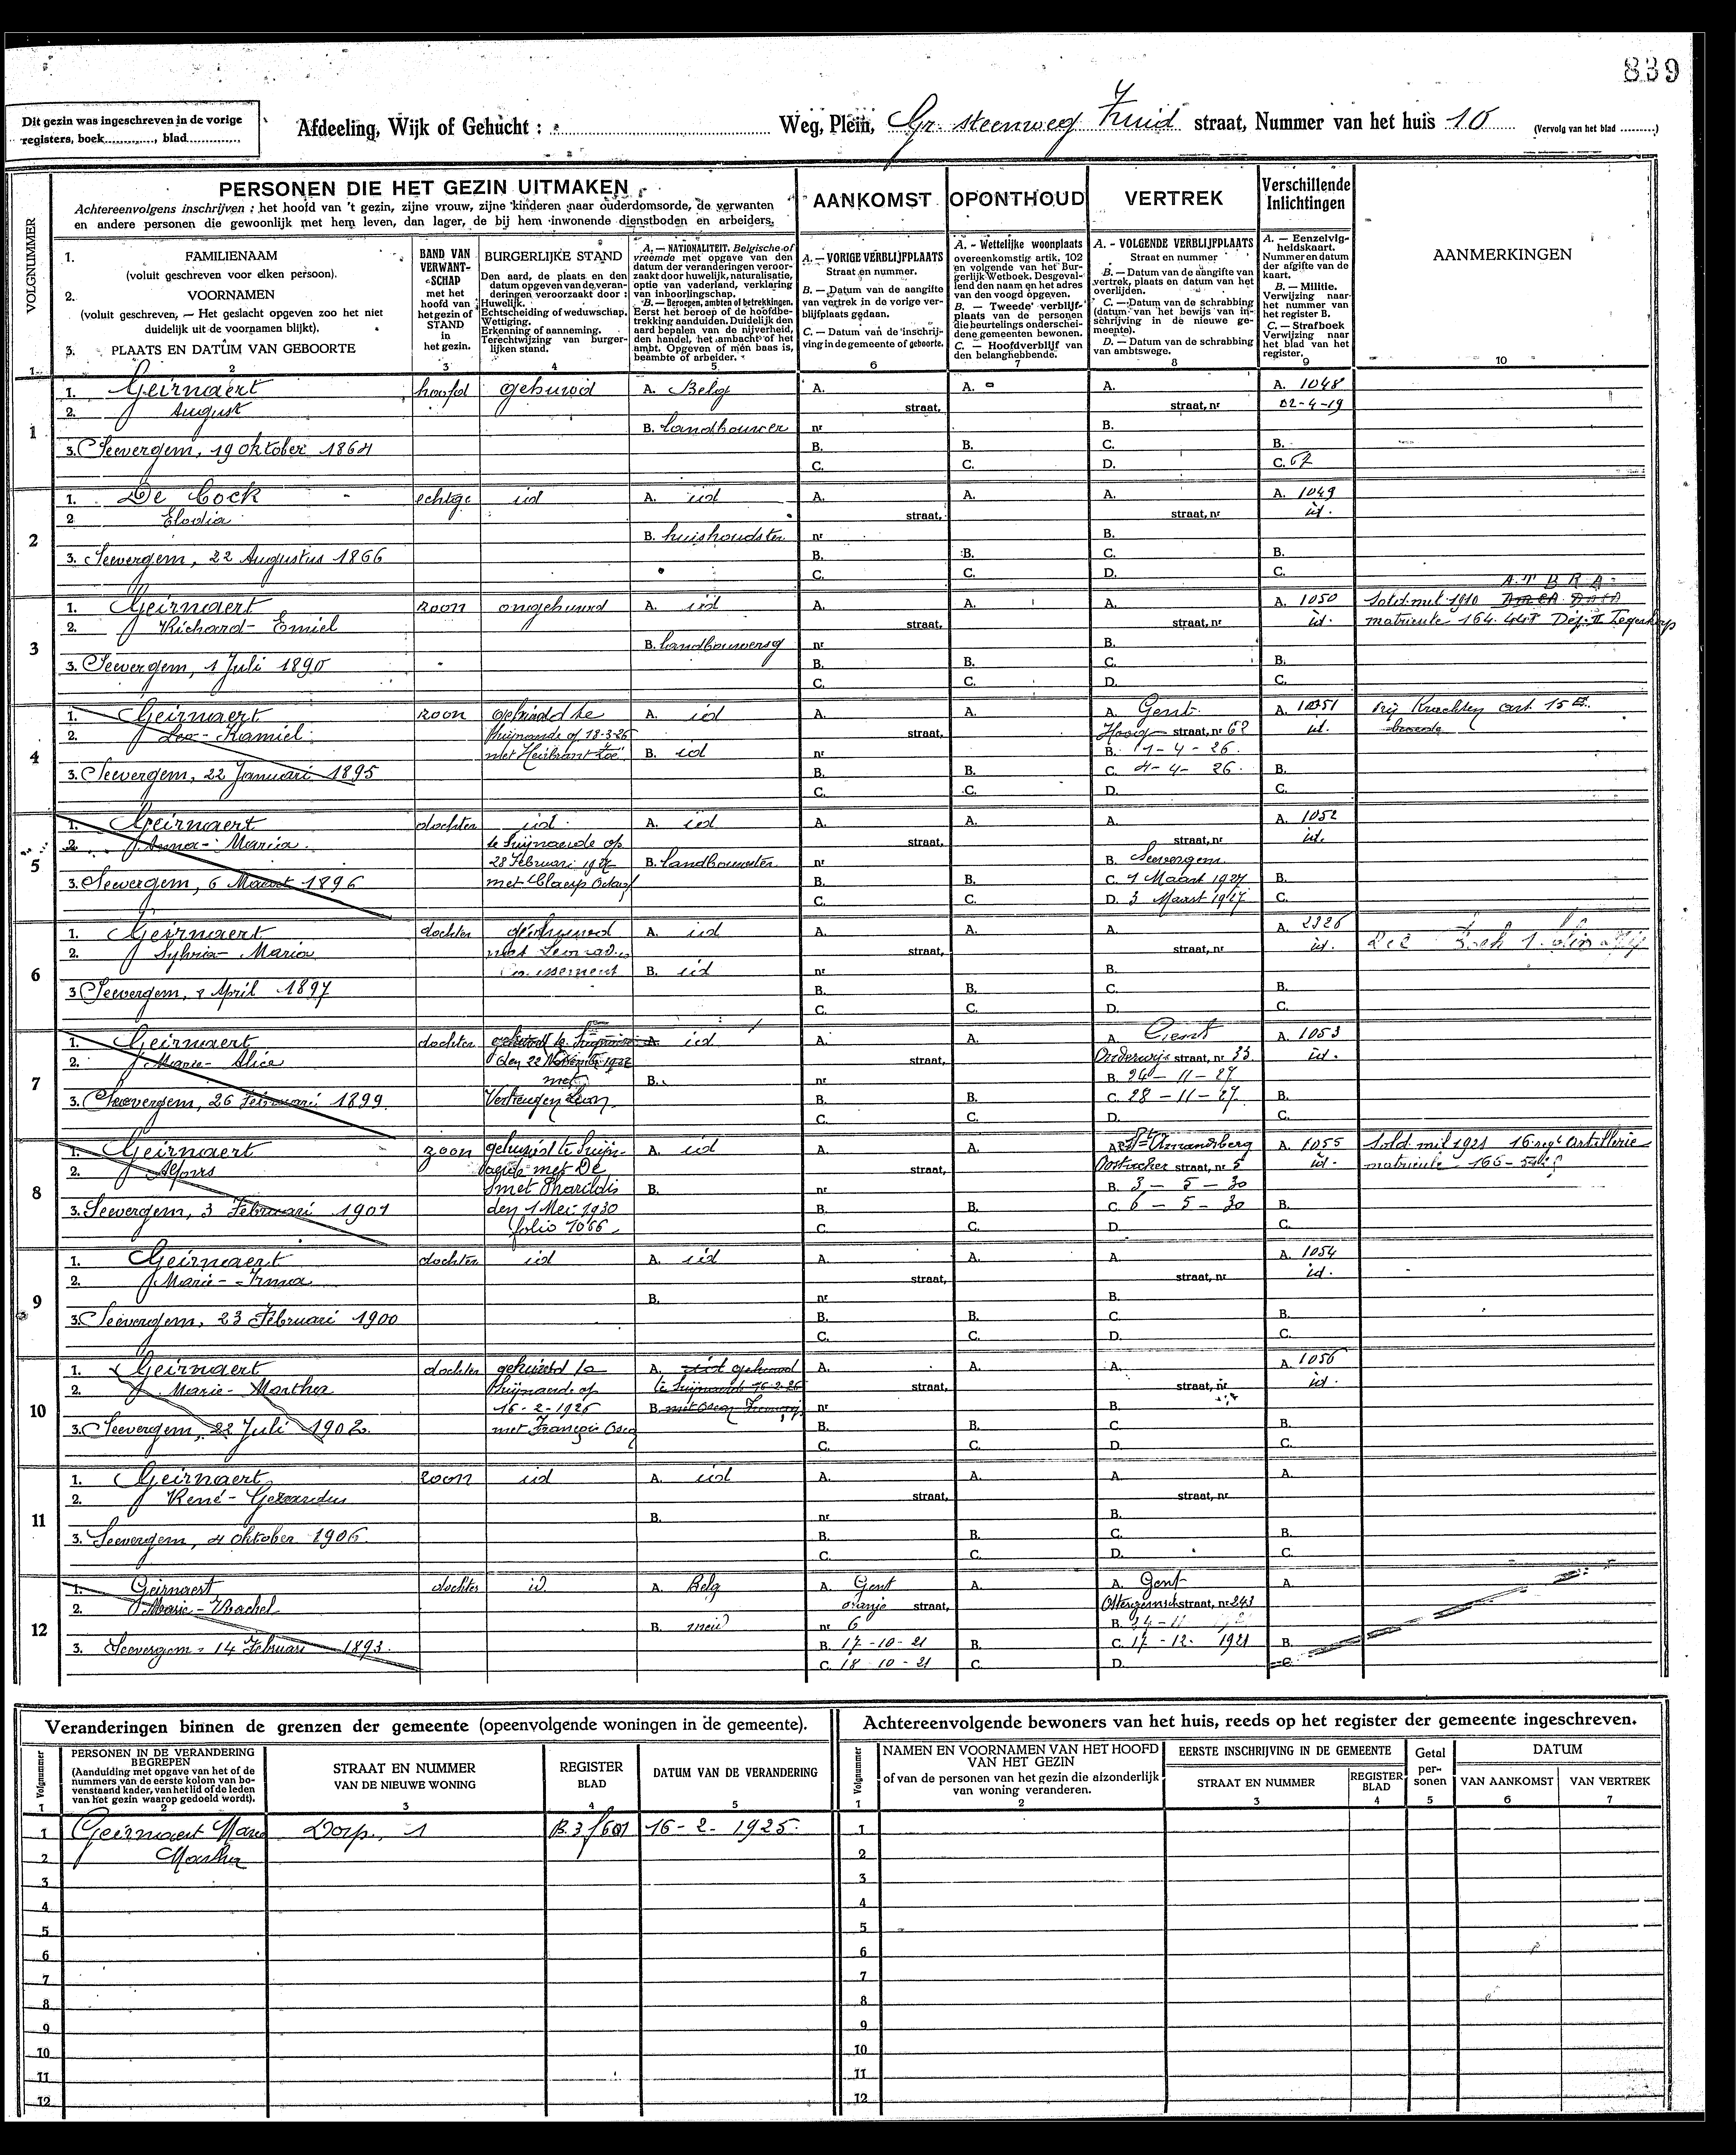 839
Dit gezin was ingeschreven in de vorige
registers, boek............., blad..............
Afdeeling, Wijk of Gehucht : ........ Weg, Plein, Gr. steenweg Zuid straat, Nummer van het huis 10 (Vervolg van het blad .........)
VOLGNUMMER
PERSONEN DIE HET GEZIN UITMAKEN
Achtereenvolgens inschrijven : het hoofd van 't gezin, zijne vrouw, zijne kinderen naar ouderdomsorde, de verwanten
en andere personen die gewoonlijk met hem leven, dan lager, de bij hem inwonende dienstboden en arbeiders.
AANKOMST
OPONTHOUD
VERTREK
Verschillende
Inlichtingen
AANMERKINGEN
1. FAMILIENAAM
(voluit geschreven voor elken persoon).
2. VOORNAMEN
(voluit geschreven, — Het geslacht opgeven zoo het niet
duidelijk uit de voornamen blijkt).
3. PLAATS EN DATUM VAN GEBOORTE
BAND VAN
VERWANT-
SCHAP
met het
hoofd van
het gezin of
STAND
in
het gezin.
BURGERLIJKE STAND
Den aard, de plaats en den
datum opgeven van de veran-
deringen veroorzaakt door :
Huwelijk.
Echtscheiding of weduwschap.
Wettiging.
Erkenning of aanneming.
Terechtwijzing van burger-
lijken stand.
A. — NATIONALITEIT. Belgische of
vreemde met opgave van den
datum der veranderingen veroor-
zaakt door huwelijk, naturalisatie,
optie van vaderland, verklaring
van inboorlingschap.
B. — Beroepen, ambten of betrekkingen.
Eerst het beroep of de hoofdbe-
trekking aanduiden. Duidelijk den
aard bepalen van de nijverheid,
den handel, het ambacht of het
ambt. Opgeven of men baas is,
beambte of arbeider.
A. — VORIGE VERBLIJFPLAATS
Straat en nummer.
B. — Datum van de aangifte
van vertrek in de vorige ver-
blijfplaats gedaan.
C. — Datum van de inschrij-
ving in de gemeente of geboorte.
A. - Wettelijke woonplaats
overeenkomstig artik. 102
en volgende van het Bur-
gerlijk Wetboek. Desgeval-
lend den naam en het adres
van den voogd opgeven.
B. — Tweede verblijf-
plaats van de personen
die beurtelings onderschei-
dene gemeenten bewonen.
C. — Hoofdverblijf van
den belanghebbende.
A. - VOLGENDE VERBLIJFPLAATS
Straat en nummer
B. — Datum van de aangifte van
vertrek, plaats en datum van het
overlijden.
C. — Datum van de schrabbing
(datum van het bewijs van in-
schrijving in de nieuwe ge-
meente).
D. — Datum van de schrabbing
van ambtswege.
A. — Eenzelvig-
heidskaart.
Nummer en datum
der afgifte van de
kaart.
B. — Militie.
Verwijzing naar
het nummer van
het register B.
C. — Strafboek
Verwijzing naar
het blad van het
register.
1 2 3 4 5 6 7 8 9 10
1
1. Geirnaert hoofd gehuwd A. Belg A. A. A. A. 1048
2. August straat, straat, nr 02-4-19
B. landbouwer nr B.
3. Seevergem, 19 oktober 1864 B. B. C. B.
C. C. D. C. 67
2
1. De Cock echtge id A. id A. A. A. A. 1049
2 Elodia straat, straat, nr id.
B. huishoudster nr B.
3. Seevergem, 22 Augustus 1866 B. B. C. B.
C. C. D. C.
3
1. Geirnaert zoon ongehuwd A. id A. A. A. A. 1050 Sold. mil. 1910 A T B R A
2. Richard- Emiel straat, straat, nr id. matricule 164.
B. nr B.
3. Seevergem, 1 Juli 1890 B. B. C. B.
C. C. D. C.
4
1. Geirnaert zoon gehuwd te A. id A. A. A. Gent A. 1051
2. Leo- Kamiel op 18-3-26 straat, straat, nr 62 id.
met B. id nr B. 1-4-26.
3. Seevergem, 22 Januari 1895 B. B. C. 4-4-26. B.
C. C. D. C.
5
1. Geirnaert dochter id. A. id A. A. A. A. 1052
2. Anna- Maria te Suijnaerde op straat, straat, nr id.
28 Februari 1927 B. landbouwster nr B. Seevergem
3. Seevergem, 6 Maart 1896 met Claeys B. B. C. 1 Maart 1927 B.
C. C. D. 3 Maart 1927 C.
6
1. Geirnaert dochter gehuwd A. id A. A. A. A. 2326
2. Sylvia- Maria met straat, straat, nr id.
B. id nr B.
3 Seevergem, 8 April 1897 B. B. C. B.
C. C. D. C.
7
1. Geirnaert dochter A. id A. A. A. Gent A. 1053
2. Marie- Alice den 22 straat, Onderwijs straat, nr 33 id.
met B. nr B. 24-11-27
3. Seevergem, 26 Februari 1899. Leon B. B. C. 28-11-27 B.
C. C. D. C.
8
1. Geirnaert zoon gehuwd te Suijn- A. id A. A. A. St Amandsberg A. 1055 Sold. mil 1921 16 regt Artillerie
2. Alfons aerde met De straat, Oostacker straat, nr 5 id. matricule 166-
Smet Pharildis B. nr B. 3-5-30
3. Seevergem, 3 Februari 1901 den 1 Mei 1930 B. B. C. 6-5-30 B.
folio 1066 C. C. D. C.
9
1. Geirnaert dochter id A. id A. A. A. A. 1054
2. Marie- Irma straat, straat, nr id.
B. nr B.
3. Seevergem, 23 Februari 1900 B. B. C. B.
C. C. D. C.
10
1. Geirnaert dochter gehuwd te A. id gehuwd A. A. A. A. 1056
2. Marie- Martha op te Suijnaerde 16-2-26 straat, straat, nr id.
16-2-1926 B. met Oscar nr B.
3. Seevergem, 22 Juli 1902. met François B. B. C. B.
C. C. D. C.
11
1. Geirnaert zoon id A. id A. A. A. A.
2. René- Gerardus straat, straat, nr
B. nr B.
3. Seevergem, 4 oktober 1906. B. B. C. B.
C. C. D. C.
12
1. Geirnaert dochter id. A. Belg A. Gent A. A. Gent A.
2. Marie- Rachel oranje straat, straat, nr 243
B. meid nr 6 B.
3. Seevergem - 14 Februari 1893. B. 17-10-21 B. C. 17-12-1921 B.
C. 18-10-21 C. D. C.
Veranderingen binnen de grenzen der gemeente (opeenvolgende woningen in de gemeente).
Volgnummer
PERSONEN IN DE VERANDERING
BEGREPEN
(Aanduiding met opgave van het of de
nummers van de eerste kolom van bo-
venstaand kader, van het lid of de leden
van het gezin waarop gedoeld wordt).
STRAAT EN NUMMER
VAN DE NIEUWE WONING
REGISTER
BLAD
DATUM VAN DE VERANDERING
1 2 3 4 5
1 Geirnaert Marie Dorp, 1 B. 3 f 601 16-2-1925.
2 Martha
3
4
5
6
7
8
9
10
11
12
Achtereenvolgende bewoners van het huis, reeds op het register der gemeente ingeschreven.
Volgnummer
NAMEN EN VOORNAMEN VAN HET HOOFD
VAN HET GEZIN
of van de personen van het gezin die afzonderlijk
van woning veranderen.
EERSTE INSCHRIJVING IN DE GEMEENTE
STRAAT EN NUMMER
REGISTER
BLAD
Getal
per-
sonen
DATUM
VAN AANKOMST
VAN VERTREK
1 2 3 4 5 6 7
1
2
3
4
5
6
7
8
9
10
11
12